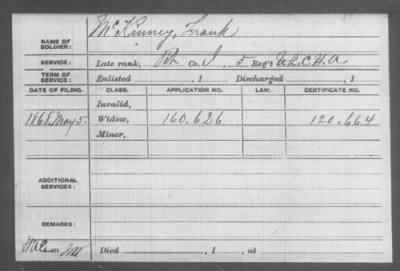 NAME OF SOLDIER: McKinney, Frank
SERVICE: Late rank, Pvt Co. I, 5 Reg't U.S.C.H.A
TERM OF SERVICE: Enlisted , 1 Discharged , 1
DATE OF FILING. CLASS. APPLICATION NO. LAW. CERTIFICATE NO.
Invalid,
1868 May 5. Widow, 160.626 120.664
Minor,
ADDITIONAL SERVICES:
REMARKS:
Died , 1 , at